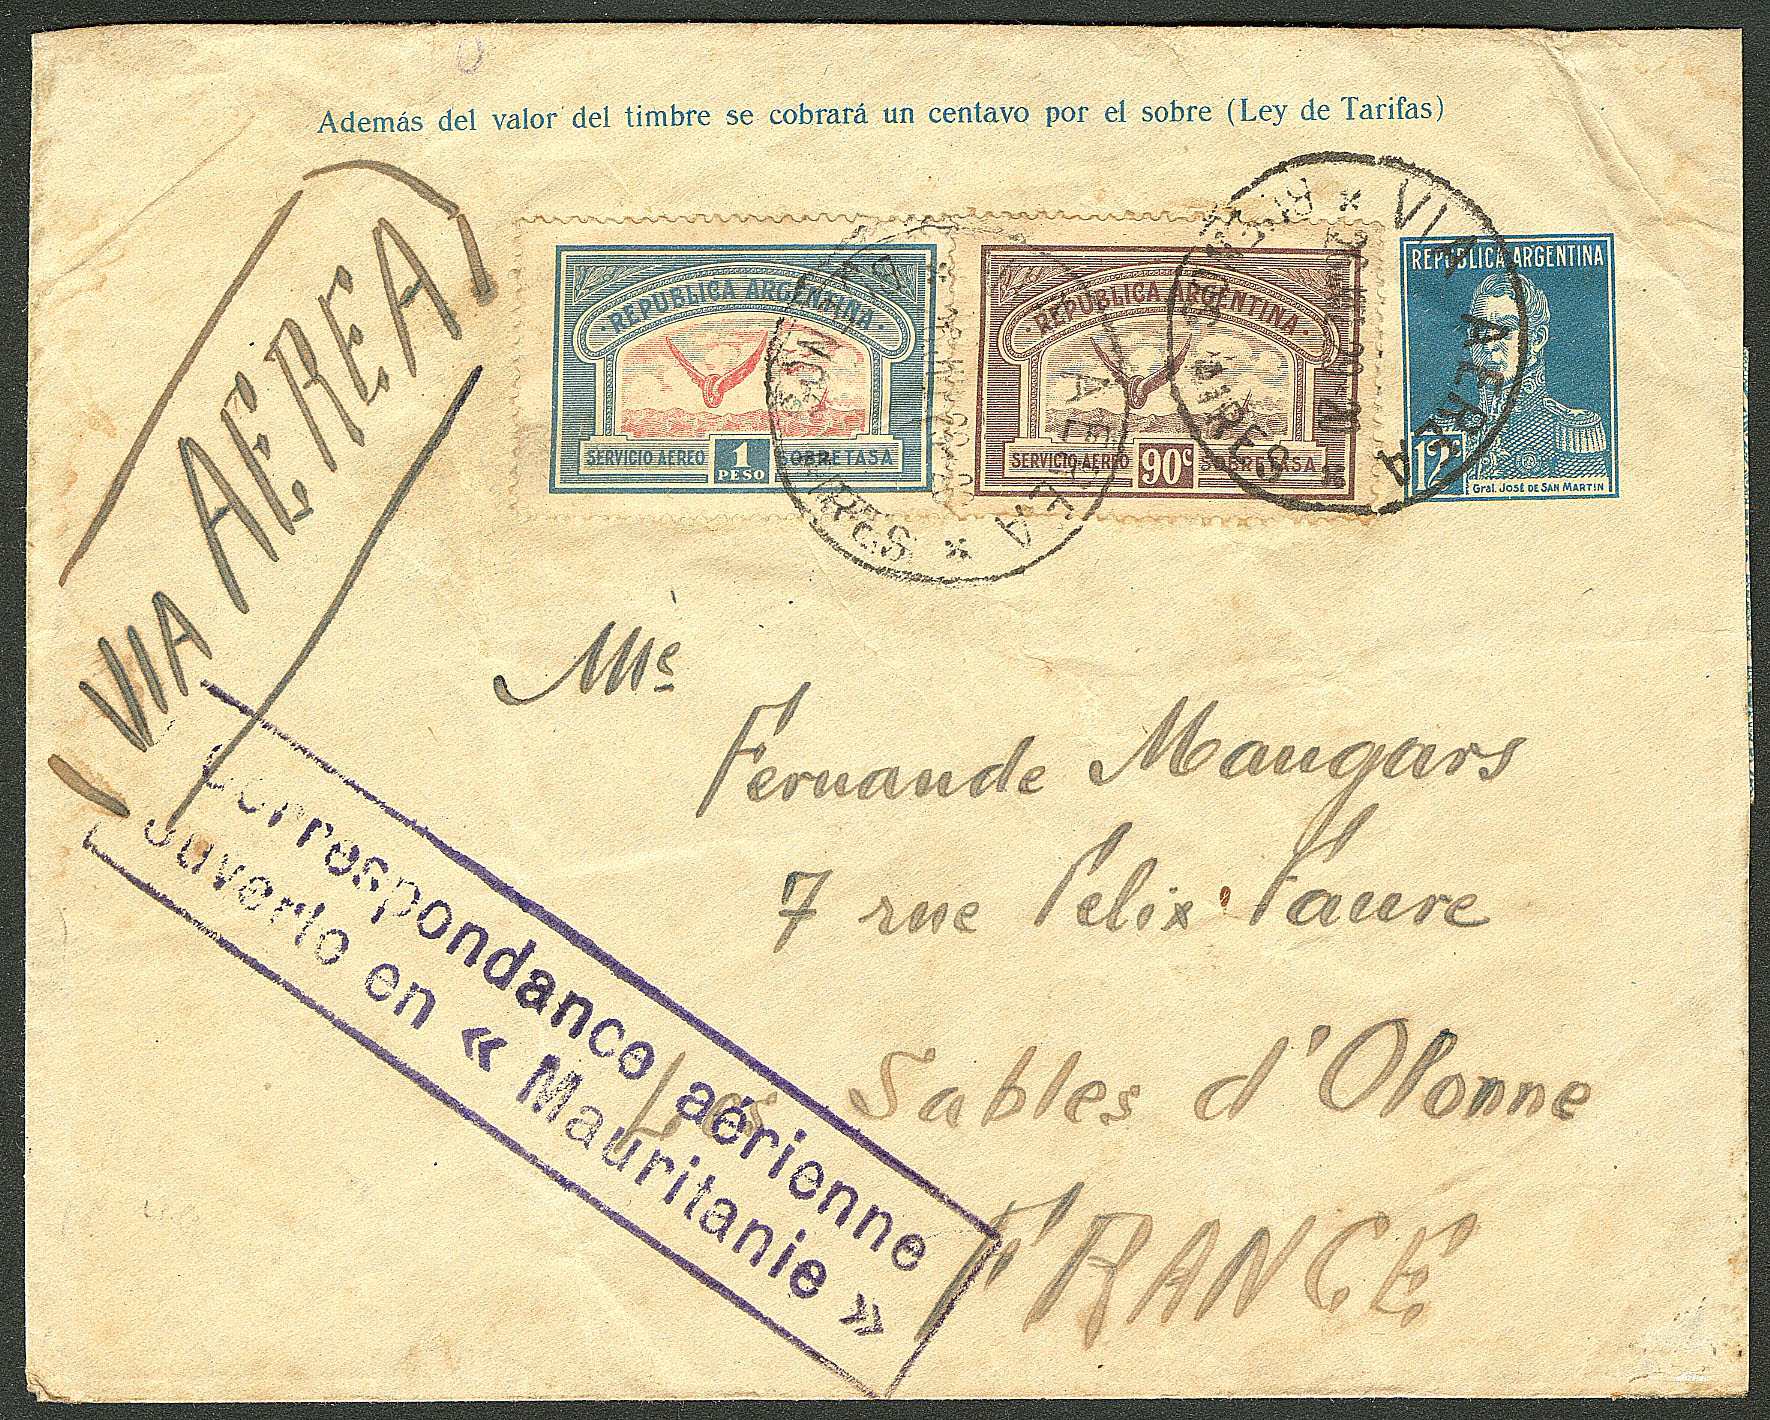 Además del valor del timbre se cobrará un centavo por el sobre (Ley de Tarifas)
VIA AEREA
REPUBLICA ARGENTINA
SERVICIO AEREO 1 PESO SOBRETASA
REPUBLICA ARGENTINA
SERVICIO AEREO 90c SOBRETASA
REPUBLICA ARGENTINA
12c
Gral. JOSÉ DE SAN MARTIN
AIRES
VIA AEREA
BUENOS AIRES
Mls
Fernande Maugars
7 rue Felix Faure
Les Sables d'Olonne
FRANCE
Correspondance aérienne
ouverte en « Mauritanie »